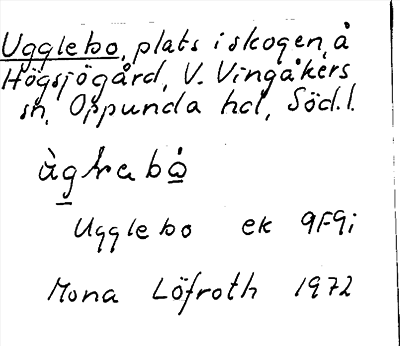 Ugglebo, plats i skogen, å
Högsjögård, V. Vingåkers
sn, Oppunda hd, Söd.l.
ùgɫabå
Ugglebo ek 9F9i
Mona Löfroth 1972